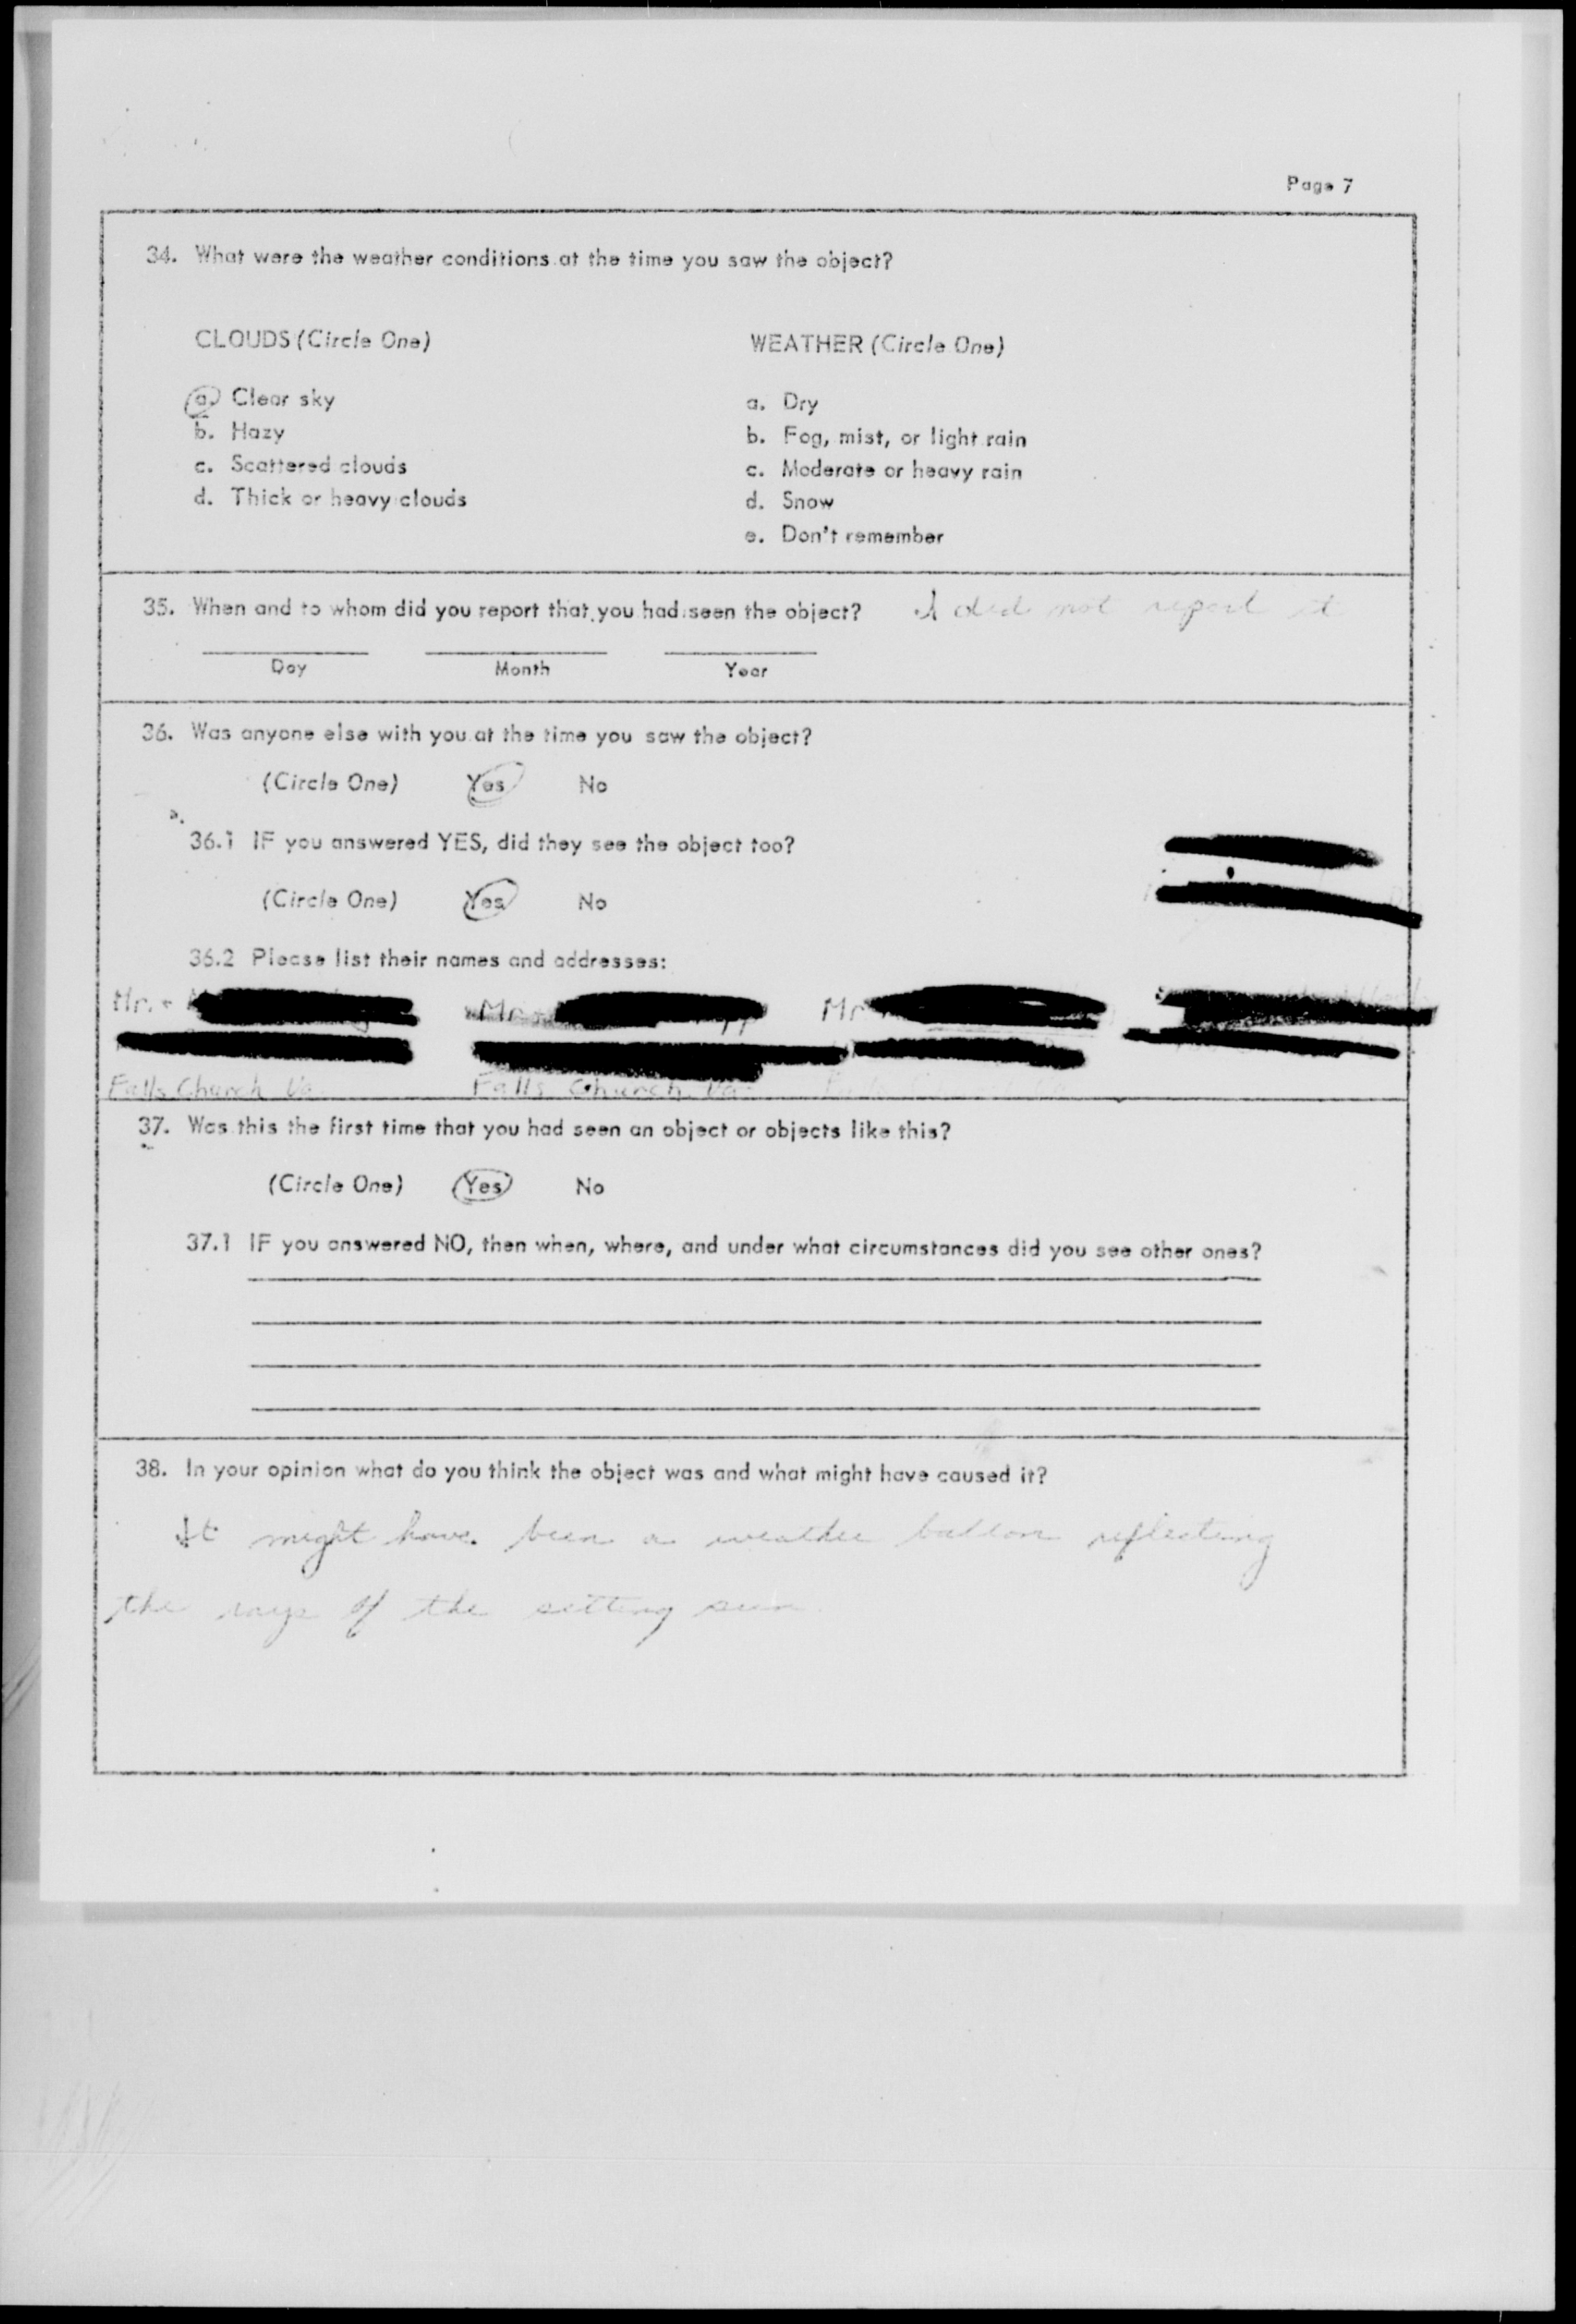 Page 7
34. What were the weather conditions at the time you saw the object?
CLOUDS (Circle One)
a. Clear sky
b. Hazy
c. Scattered clouds
d. Thick or heavy clouds
WEATHER (Circle One)
a. Dry
b. Fog, mist, or light rain
c. Moderate or heavy rain
d. Snow
e. Don't remember
35. When and to whom did you report that you had seen the object? I did not report it
Day Month Year
36. Was anyone else with you at the time you saw the object?
(Circle One) Yes No
36.1 IF you answered YES, did they see the object too?
(Circle One) Yes No
36.2 Please list their names and addresses:
Mr. + Mr. + Mr
Falls Church Va. Falls Church, Va.
37. Was this the first time that you had seen an object or objects like this?
(Circle One) Yes No
37.1 IF you answered NO, then when, where, and under what circumstances did you see other ones?
38. In your opinion what do you think the object was and what might have caused it?
It might have been a weather balloon reflecting
the rays of the setting sun